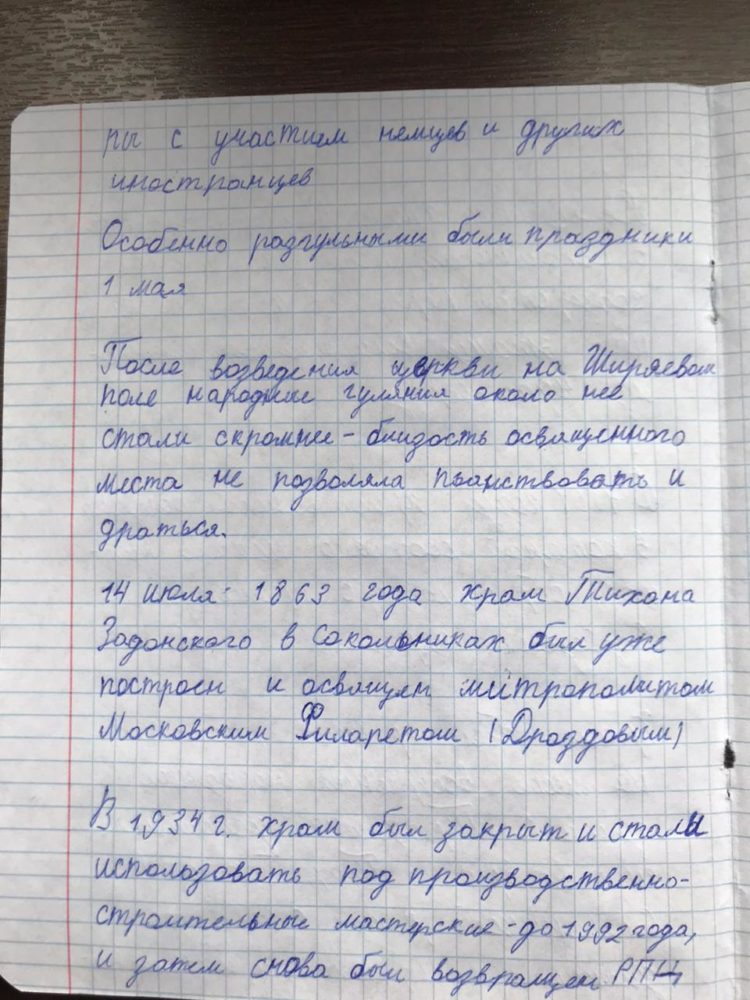 ры с участием немцев и других
иностранцев
Особенно разгульными были праздники
1 мая
После возведения церкви на Ширяевом
поле народные гуляния около неё
стали скромнее - близость освященного
места не позволяла пьянствовать и
драться.
14 июля 1863 года храм Тихона
Задонского в Сокольниках был уже
построен и освящен митрополитом
Московским Филаретом (Дроздовым)
В 1934 г. храм был закрыт и стали
использовать под производственно-
строительные мастерские - до 1992 года,
и затем снова был возвращен РПЦ